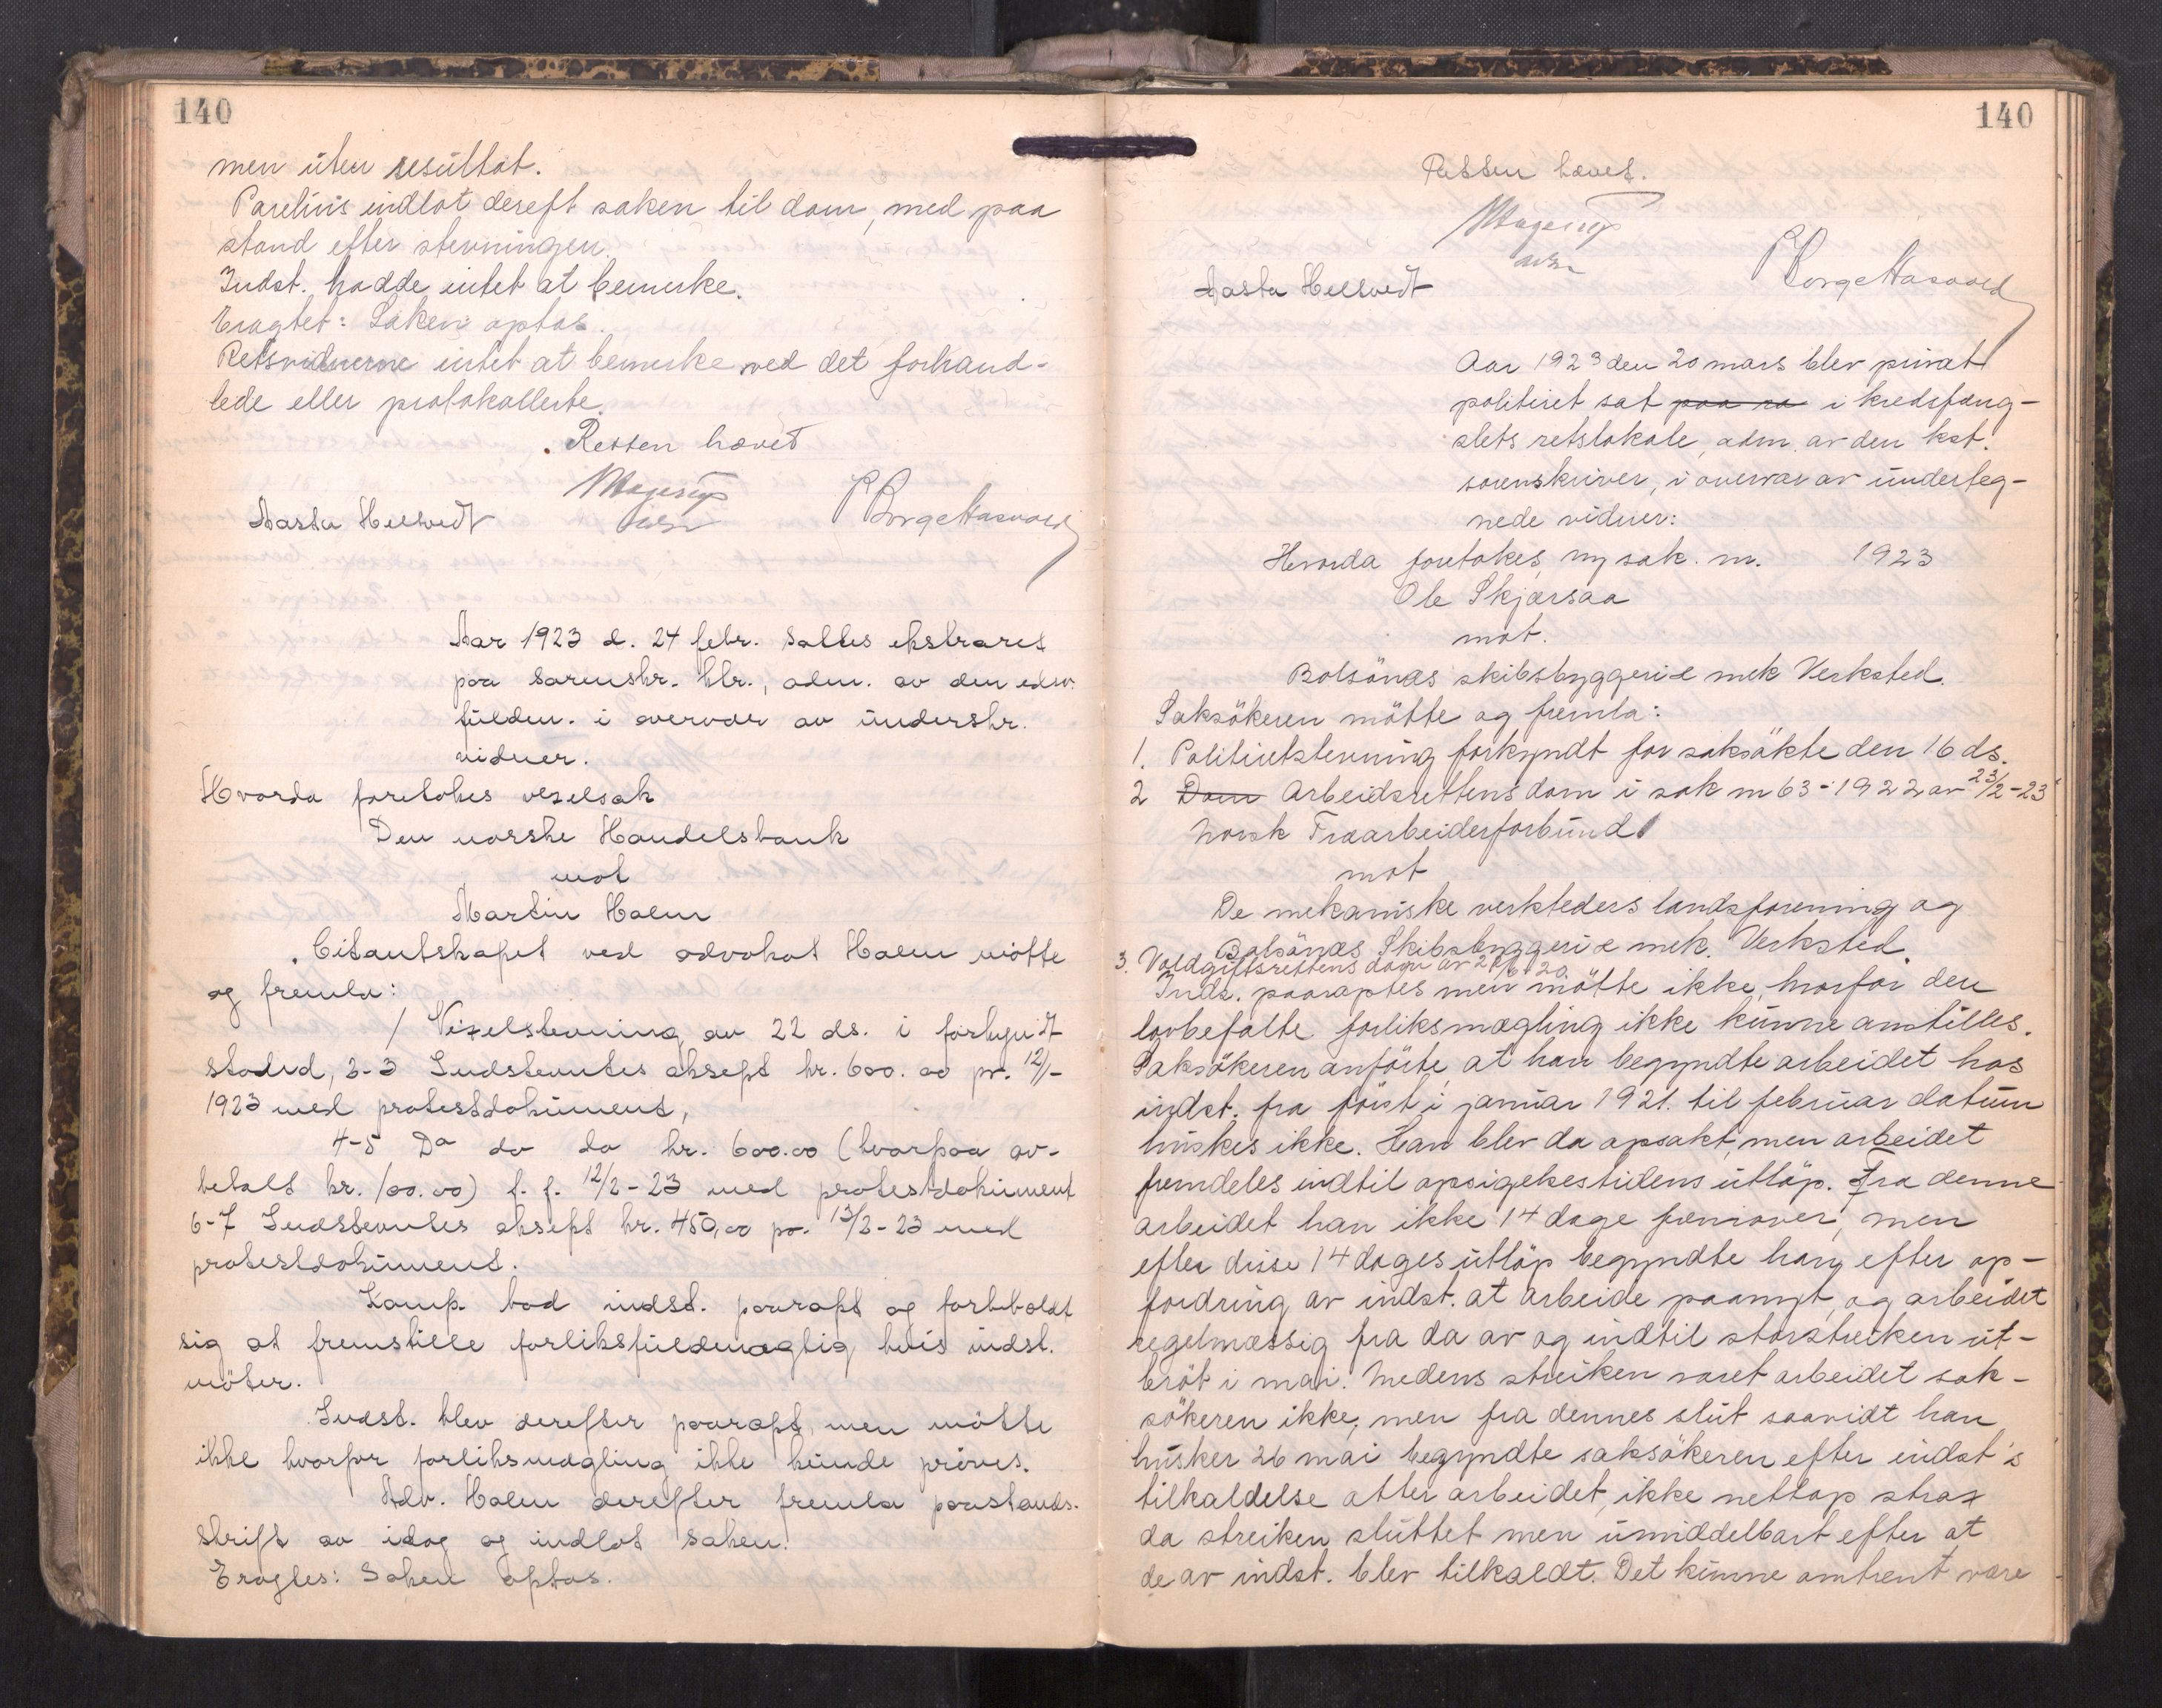 140
men uten resultat.
Parelius indlot dereft saken til dom, med paa
stand efter stevningen.
Indst. hadde intet at bemerke.
Eragtet: Saken optas.
Retsvidnerne intet at bemerke ved det forhand-
lede eller protokollerte.
Retten hævet
Aasta Hellvedt
Aar 1923 d. 24 febr. sattes ekstraret
paa sorenskr. ktr., adm. av den edsv.
fuldm. i overvær av underskr.
vidner.
Hvorda foretokes vexelsak
Den norske Handelsbank
mot
Martin Holm
Citantskapet ved advokat Holm mötte
og fremla:
1 Vexelstevning av 22 ds. i forkyndt
stand, 2-3 Indstevntes aksept kr. 600.00 pr. 12/1-
1923 med protestdokument,
4-5 Do do do kr. 600.00 (hvorpaa av-
betalt kr. 100.00) f. f. 12/2-23 med protestdokument
6-7 Indstevntes aksept kr. 450,00 pr. 13/2-23 med
protestdokument.
Komp. bad indst. paaropt og forbeholdt
sig at fremstille forliksfuldmægtig hvis indst.
möter.
Indst. blev derefter paaropt, men mötte
ikke hvorfor forliksmægling ikke kunde pröves.
Adv. Holm derefter fremla paastands-
skrift av idag og indlot saken.
Eragtes: Saken optas.
140
Retten hævet.
Aasta Hellvedt
Aar 1923 den 20 mars blev privat
politiret sat paa so i kredsfæng-
slets retslokale, adm. av den kst.
sorenskriver, i overvær av underteg-
nede vidner:
Hvorda foretokes ny sak. nr. 1923
Ole Skjærsaa
mot.
Bolsönæs skibsbyggeri & mek Verksted.
Saksökeren mötte og fremla:
1. Politiretstevning forkyndt for saksökte den 16 ds.
2 Dom Arbeidsrettens dom i sak nr 63-1922 av 23/2-23
Norsk Træarbeiderforbund
mot
De mekaniske verksteders landsforening og
Bolsönæs Skibsbyggeri & mek. Verksted.
3. Voldgiftsrettens dom av
Indst. paaroptes men mötte ikke, hvorfor den
lovbefalte forliksmægling ikke kunne anstilles.
Saksökeren anförte, at han begyndte arbeidet hos
indst. fra först i januar 1921. til februar datum
huskes ikke. Han blev da opsakt, men arbeidet
fremdeles indtil opsigelsestidens utlöp. Fra denne
arbeidet han ikke 14 dage fremover, men
efter disse 14 dages utlöp begyndte han efter op-
fordring av indst. at arbeide paanyt, og arbeidet
regelmæssig fra da av og indtil storstreiken ut-
bröt i mai. Medens streiken varet arbeidet sak-
sökeren ikke, men fra dennes slut saavidt han
husker 26 mai begyndte saksökeren efter indst's
tilkaldelse atter arbeidet, ikke nettop strax
da streiken sluttet men umiddelbart efter at
de av indst. blev tilkaldt. Det kunne omtrent være